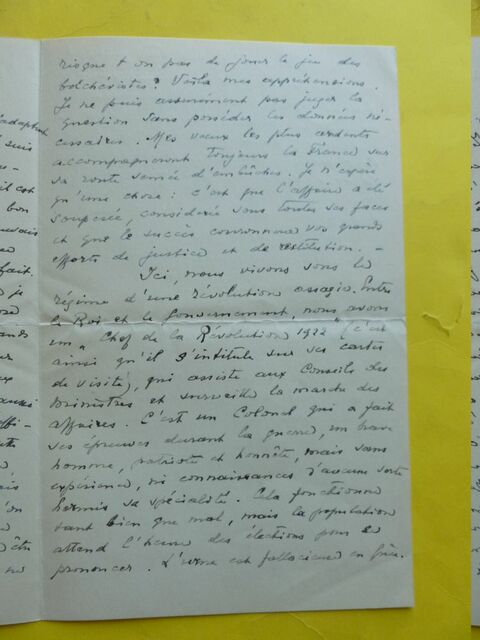 risque t on pas de jouer le jeu des
bolchévistes? Voilà mes appréhensions.
Je ne puis assurément pas juger la
question sans posséder les données né-
cessaires. Mes vœux les plus ardents
accompagneront toujours la France sur
sa route semée d'embûches. Je n'espère
qu'une chose: c'est que l'affaire a été
soupesée, considérée sous toutes ses faces
et que le succès couronnera vos grands
efforts de justice et de restitution. –
Ici, nous vivons sous le
régime d'une révolution assagie. Entre
le Roi et le Gouvernement, nous avons
un „Chef de la Révolution 1922" (c'est
ainsi qu'il s'intitule sur ses cartes
de visite), qui assiste aux Conseils des
Ministres et surveille la marche des
affaires. C'est un Colonel qui a fait
ses épreuves durant la guerre, un brave
homme, patriote et honnête, mais sans
expérience, ni connaissances d'aucune sorte
hormis sa spécialité. Cela fonctionne
tant bien que mal, mais la population
attend l'heure des élections pour se
prononcer. L'urne est fallacieuse en Grèce.
adaptent
suis
il est
bon
fait.
je